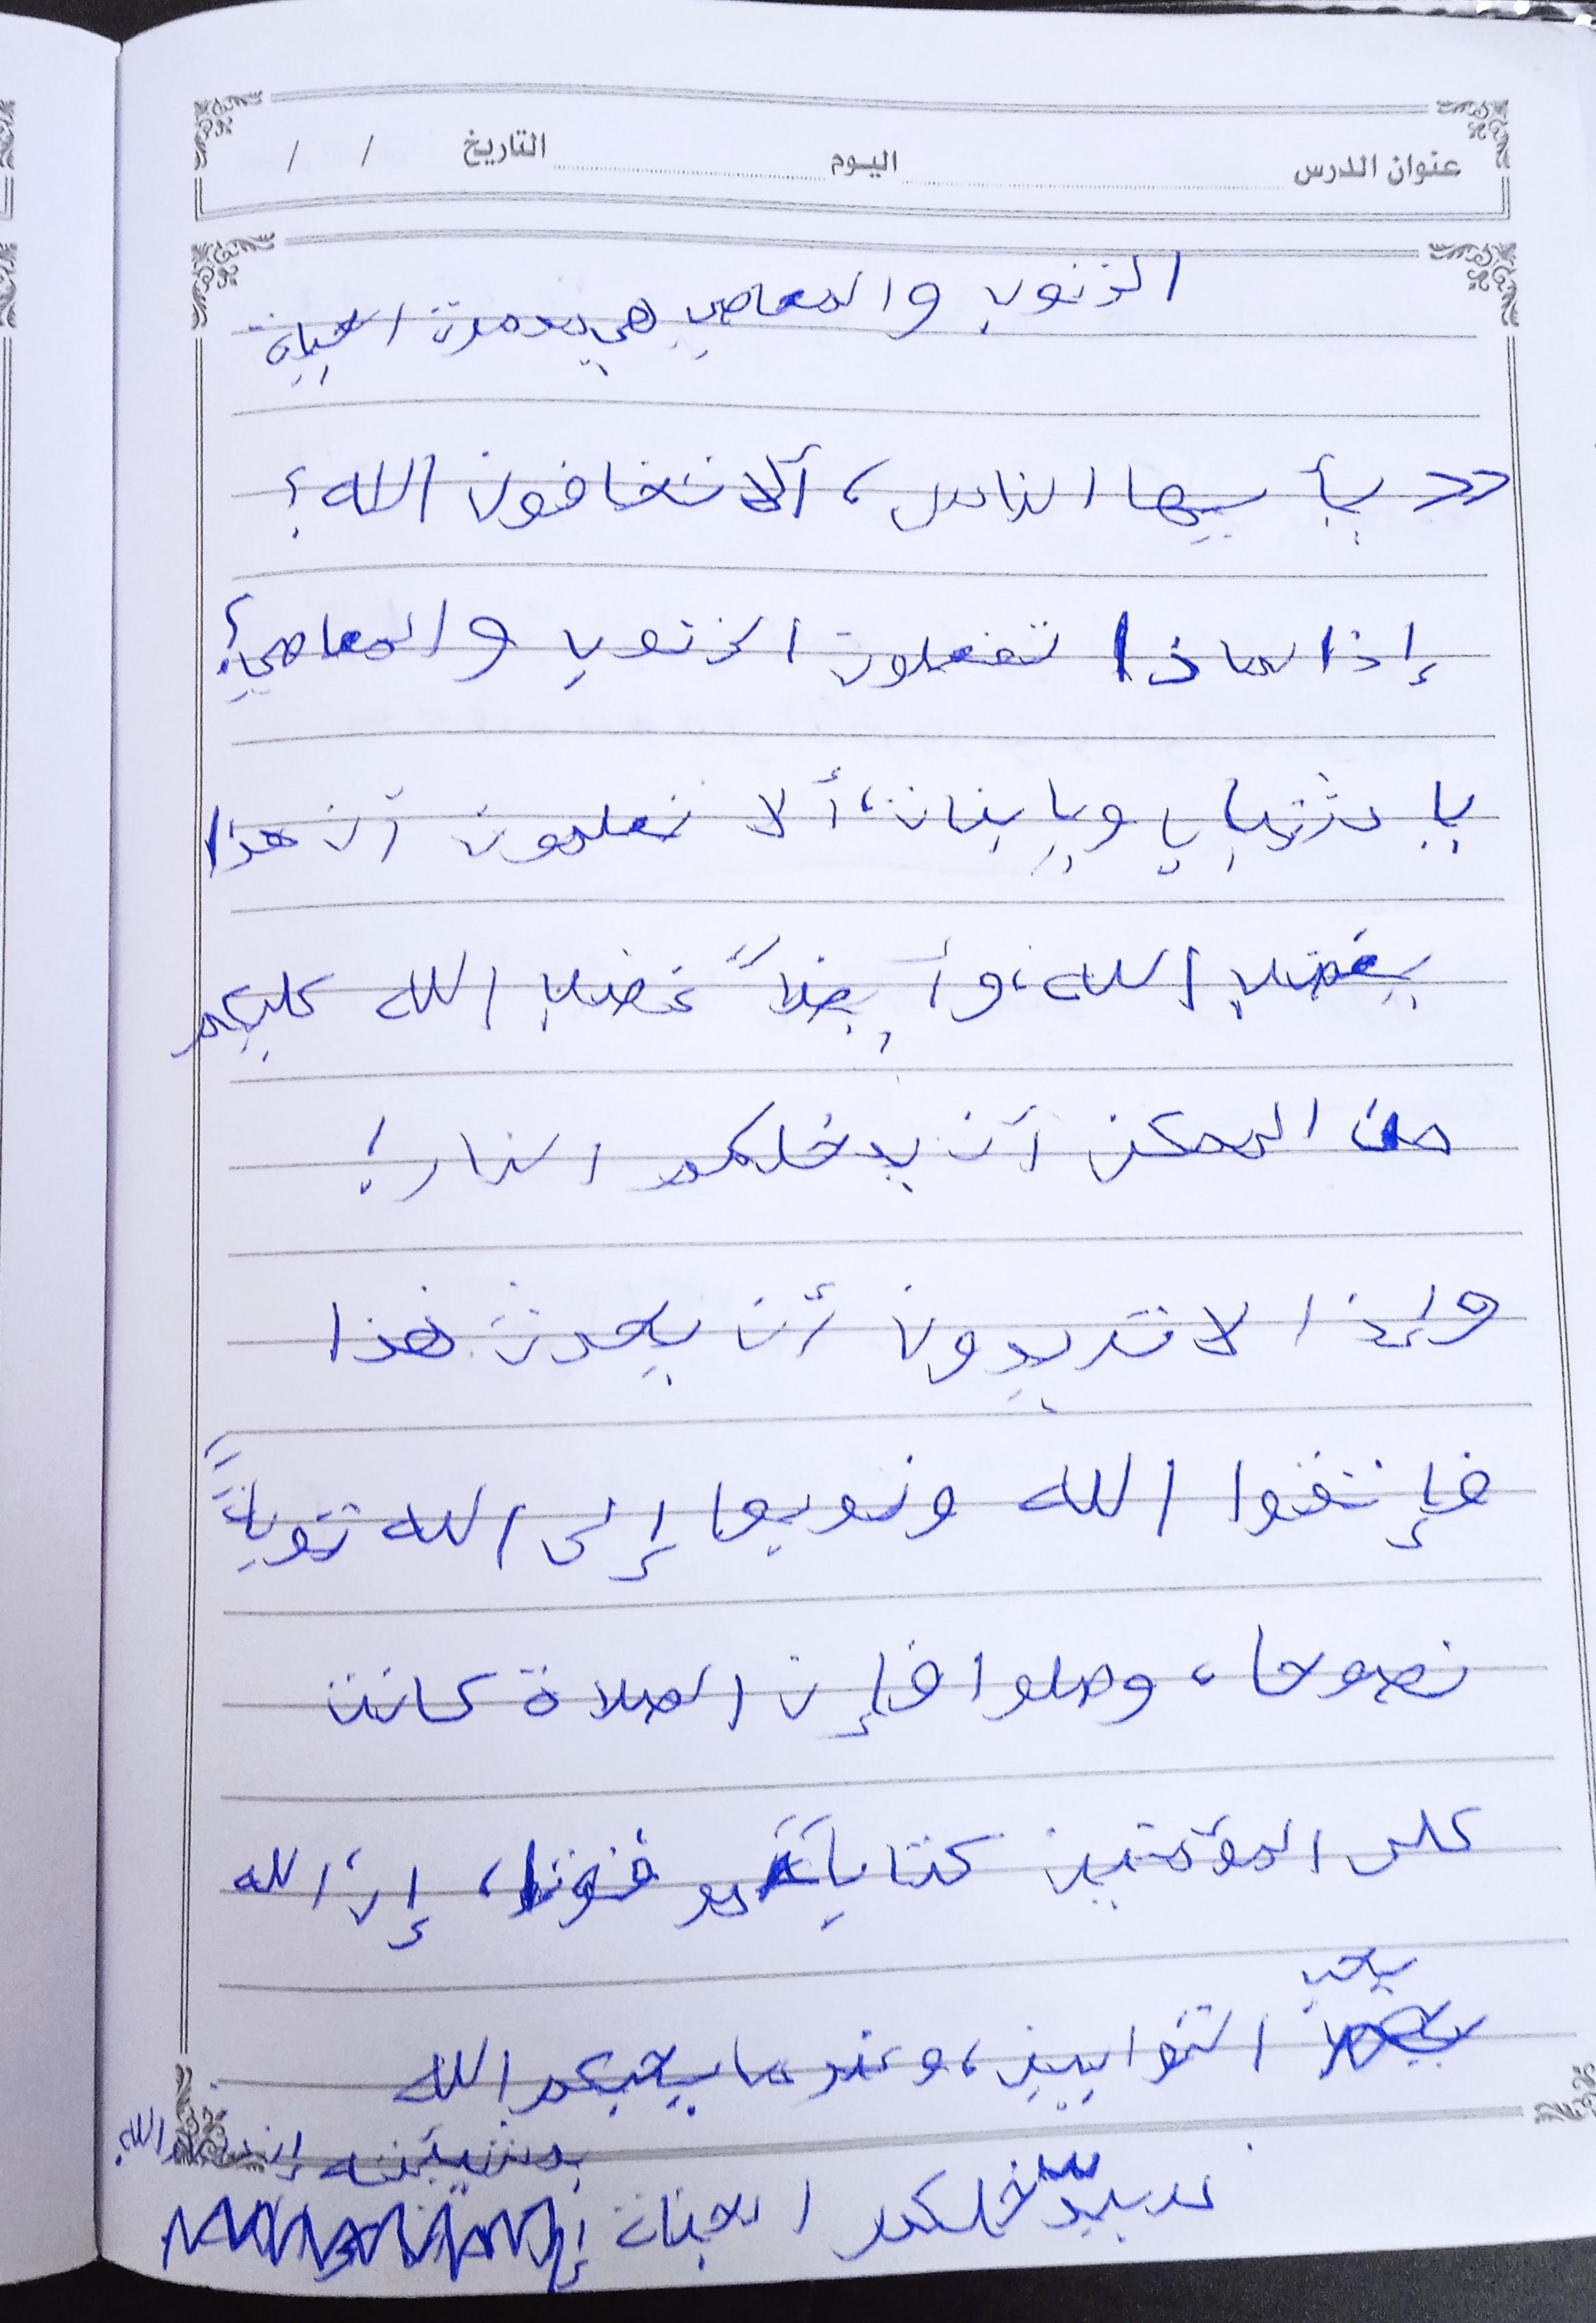 عنوان الدرس اليوم التاريخ / /
الذنوب والمعاصي هي مدمرت الحياة
<< يأيها الناس، ألا تخافون الله؟
إذا لماذا تفعلون الذنوب والمعاصي؟
يا شباب ويا بنات، ألا تعلمون أن هذا
يغضب الله، وأيضاً غضب الله عليكم
من الممكن أن يدخلكم النار!
وإذا لا تريدون أن يحدث هذا
فإتقوا الله وتوبوا إلى الله توباةً
نصوحا، وصلوا فإن الصلاة كانت
على المؤمنين كتاباً موقوتا، إن الله
يحب التوابين، وعندما يحبكم الله
سيدخلكم الجناة بمشيئته إن شاء الله